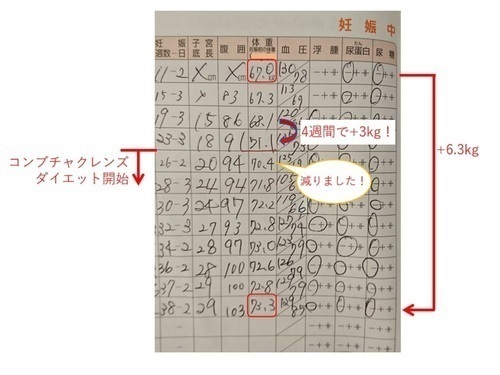 妊娠中
妊娠 子宮 腹囲 体重 血圧 浮腫 尿蛋白 尿糖
週数-日 底長
11-2 × cm × cm 67.0 130/78 - + ++
15-3 × 83 67.3 113/69
19-3 15 86 68.1
23-3 18 91
26-2 20 94 70.4
28-3 24 94 71.8
30-3 24 97 72.2
32-3 27 93 72.8
34-2 28 97 73.0
36-2 28 100 72.6
37-2 29 100 72.8
38-2 29 103 73.3
- + ++ - + ++ - + ++
- + ++ - + ++ - + ++
4週間で+3kg！
減りました！
+6.3kg
コンブチャクレンズ
ダイエット開始